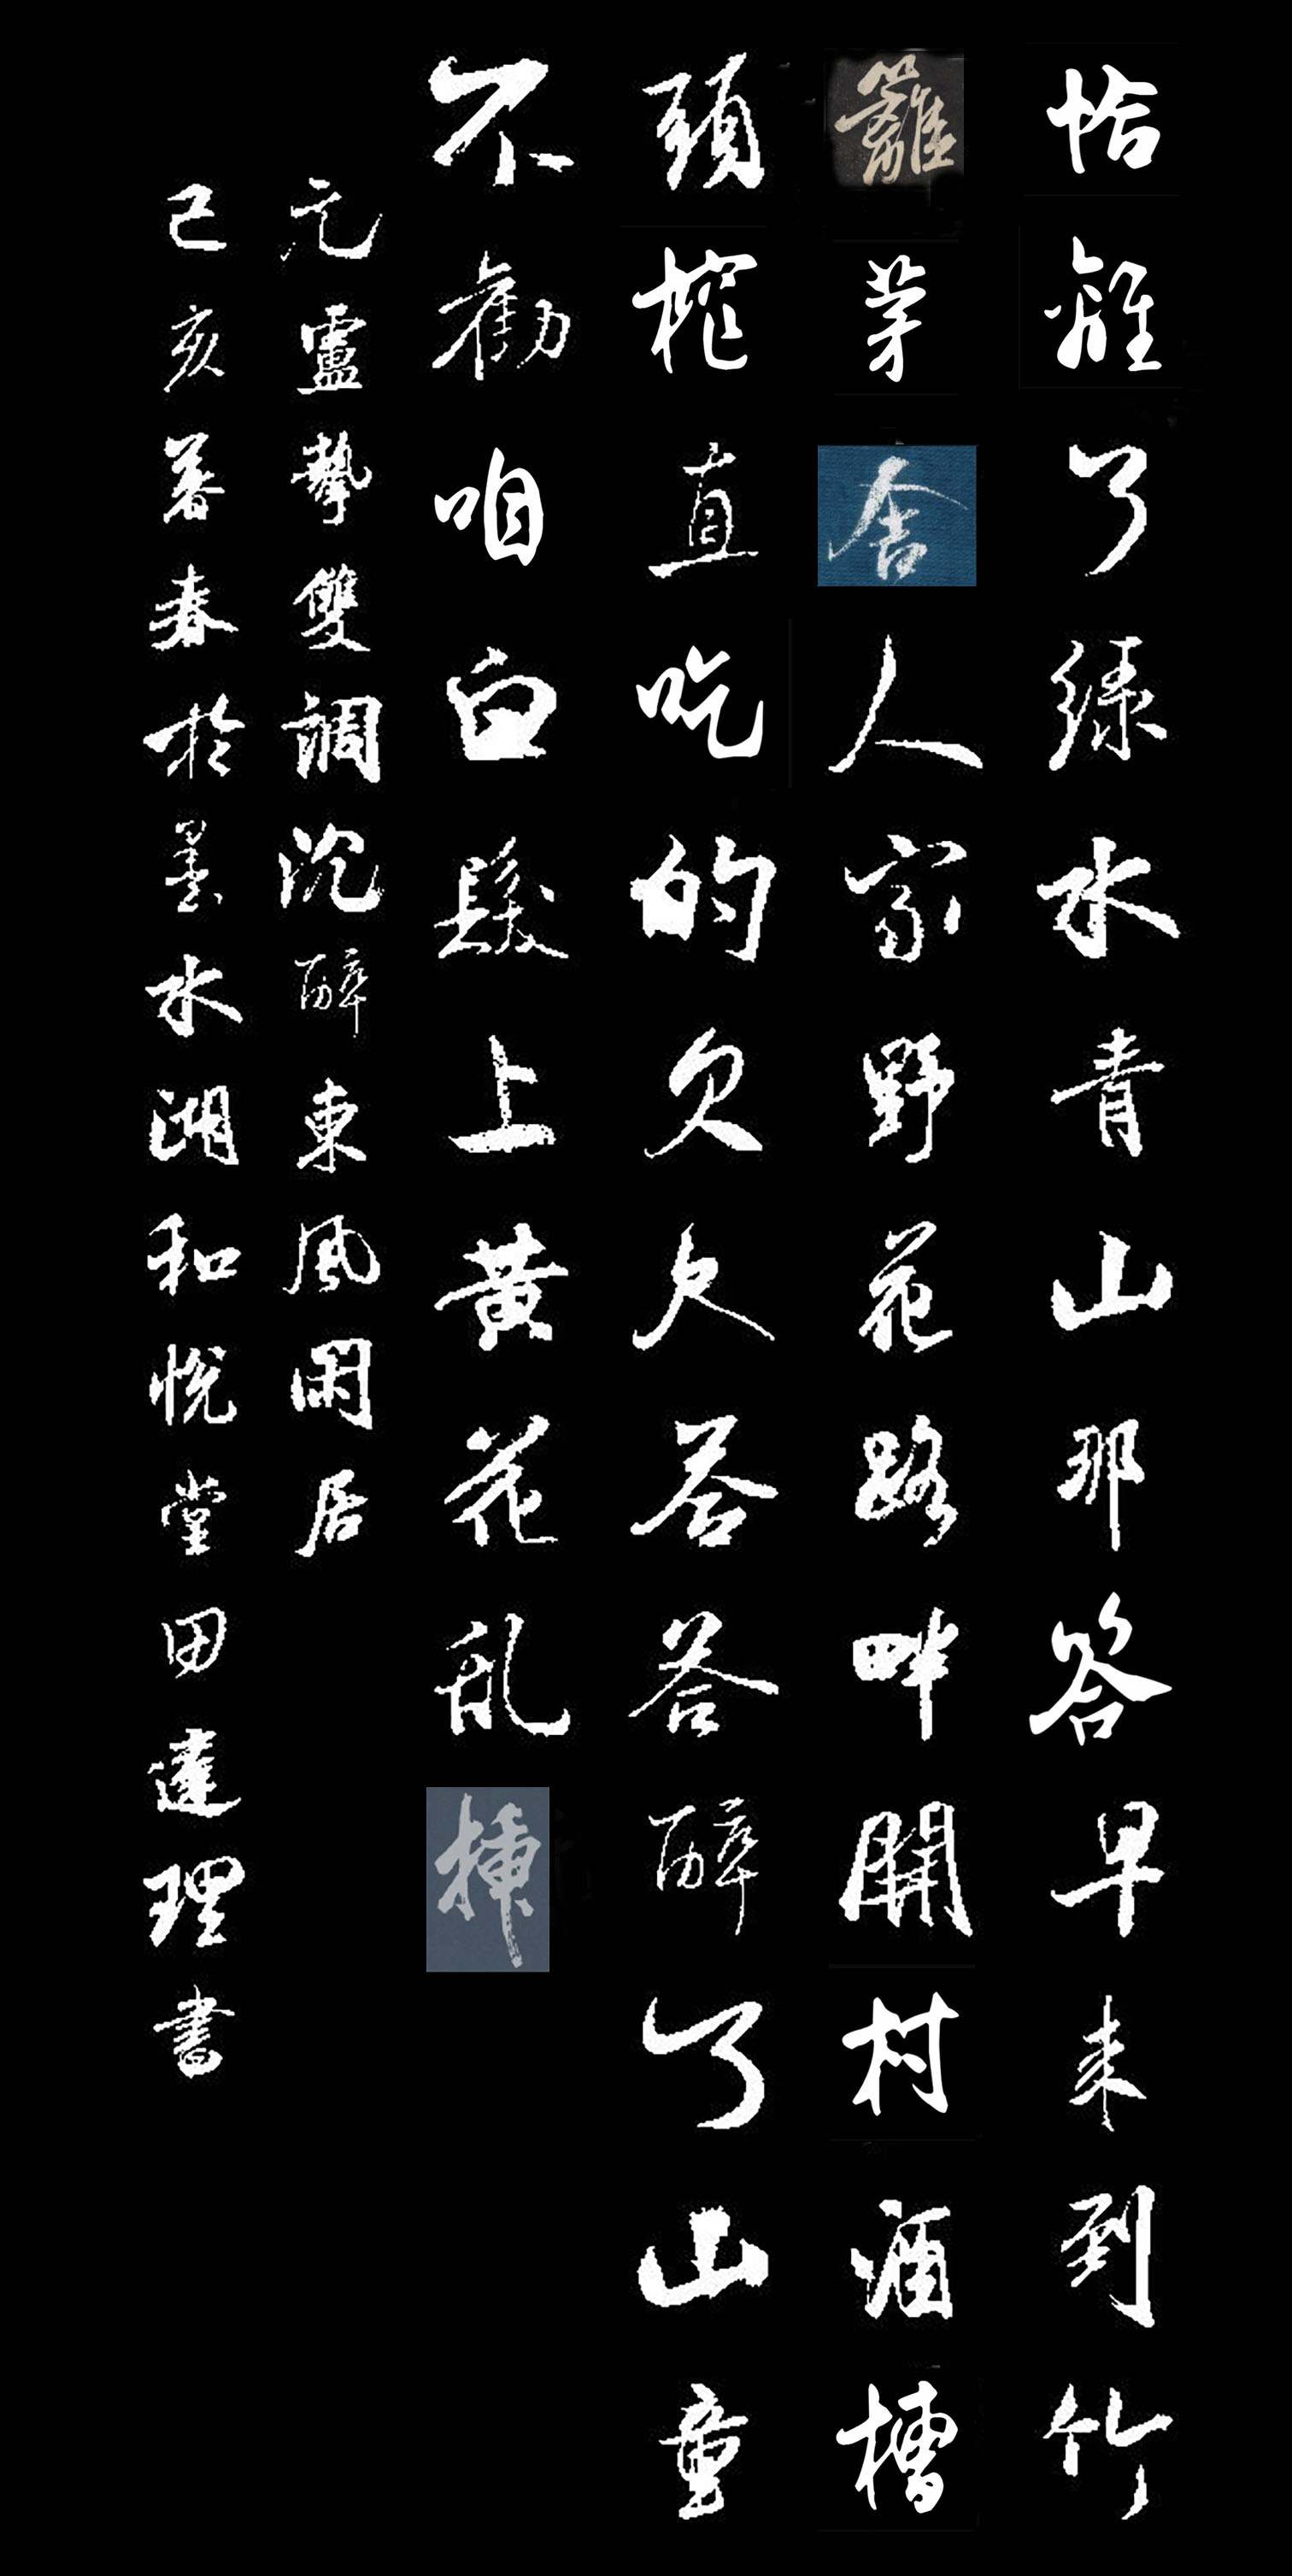 恰離了綠水青山那答早来到竹
籬茅舎人家野花路畔開村酒槽
頭榨直吃的欠欠答答醉了山童
不勸咱白髮上黄花乱插
元盧摯雙調沉醉東風閑居
己亥暮春於墨水湖和悦堂田達理書